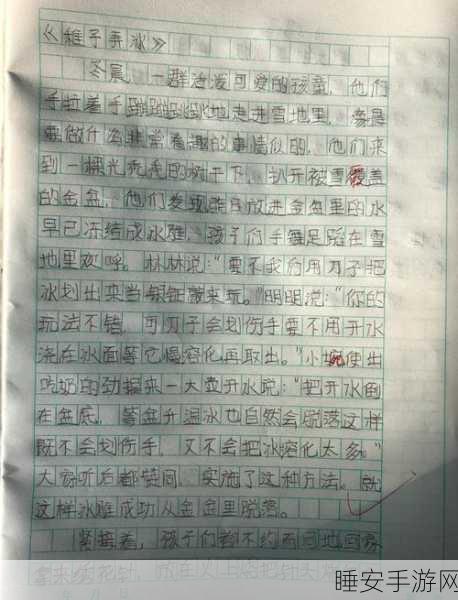 《稚子弄冰》
冬晨，一群活泼可爱的孩童，他们
手拉着手蹦蹦跳跳地走进雪地里，像是
要做什么非常有趣的事情似的，他们来
到一棵光秃秃的树干下，扒开被雪覆盖
的金盆，他们发现昨日放进金盆里的水
早已冻结成冰雕，孩子们手舞足蹈在雪
地里欢呼。林林说：“要不我们用刀子把
冰划出来当银钲敲来玩。”明明说：“你的
玩法不错，可刀子会划伤手要不用开水
浇在冰面等它慢溶化再取出。”小 使出
吃奶的劲提来一大壶开水说：“把开水倒
在盆底，等盆升温冰也自然会脱落这样
既不会划伤手，又不会把冰熔化太多。”
大家听后都赞同，实施了这种方法。就
这样冰雕成功从金盆里脱落。
紧接着，孩子们都不约而同地回家
拿来绣花针，放在火上烧把针头
睡安手游网